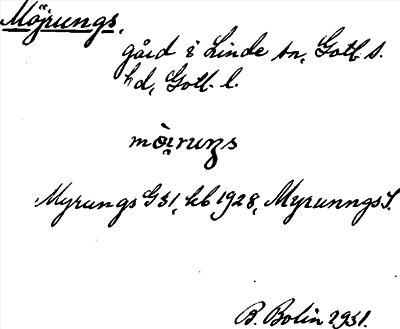 Möjrungs,
gård i Linde sn, Gotl. s.
hd, Gotl. l.
mòi̯ruŋs
Myrungs G 31, kb 1928, Myrunngs J.
B. Bolin 1931.